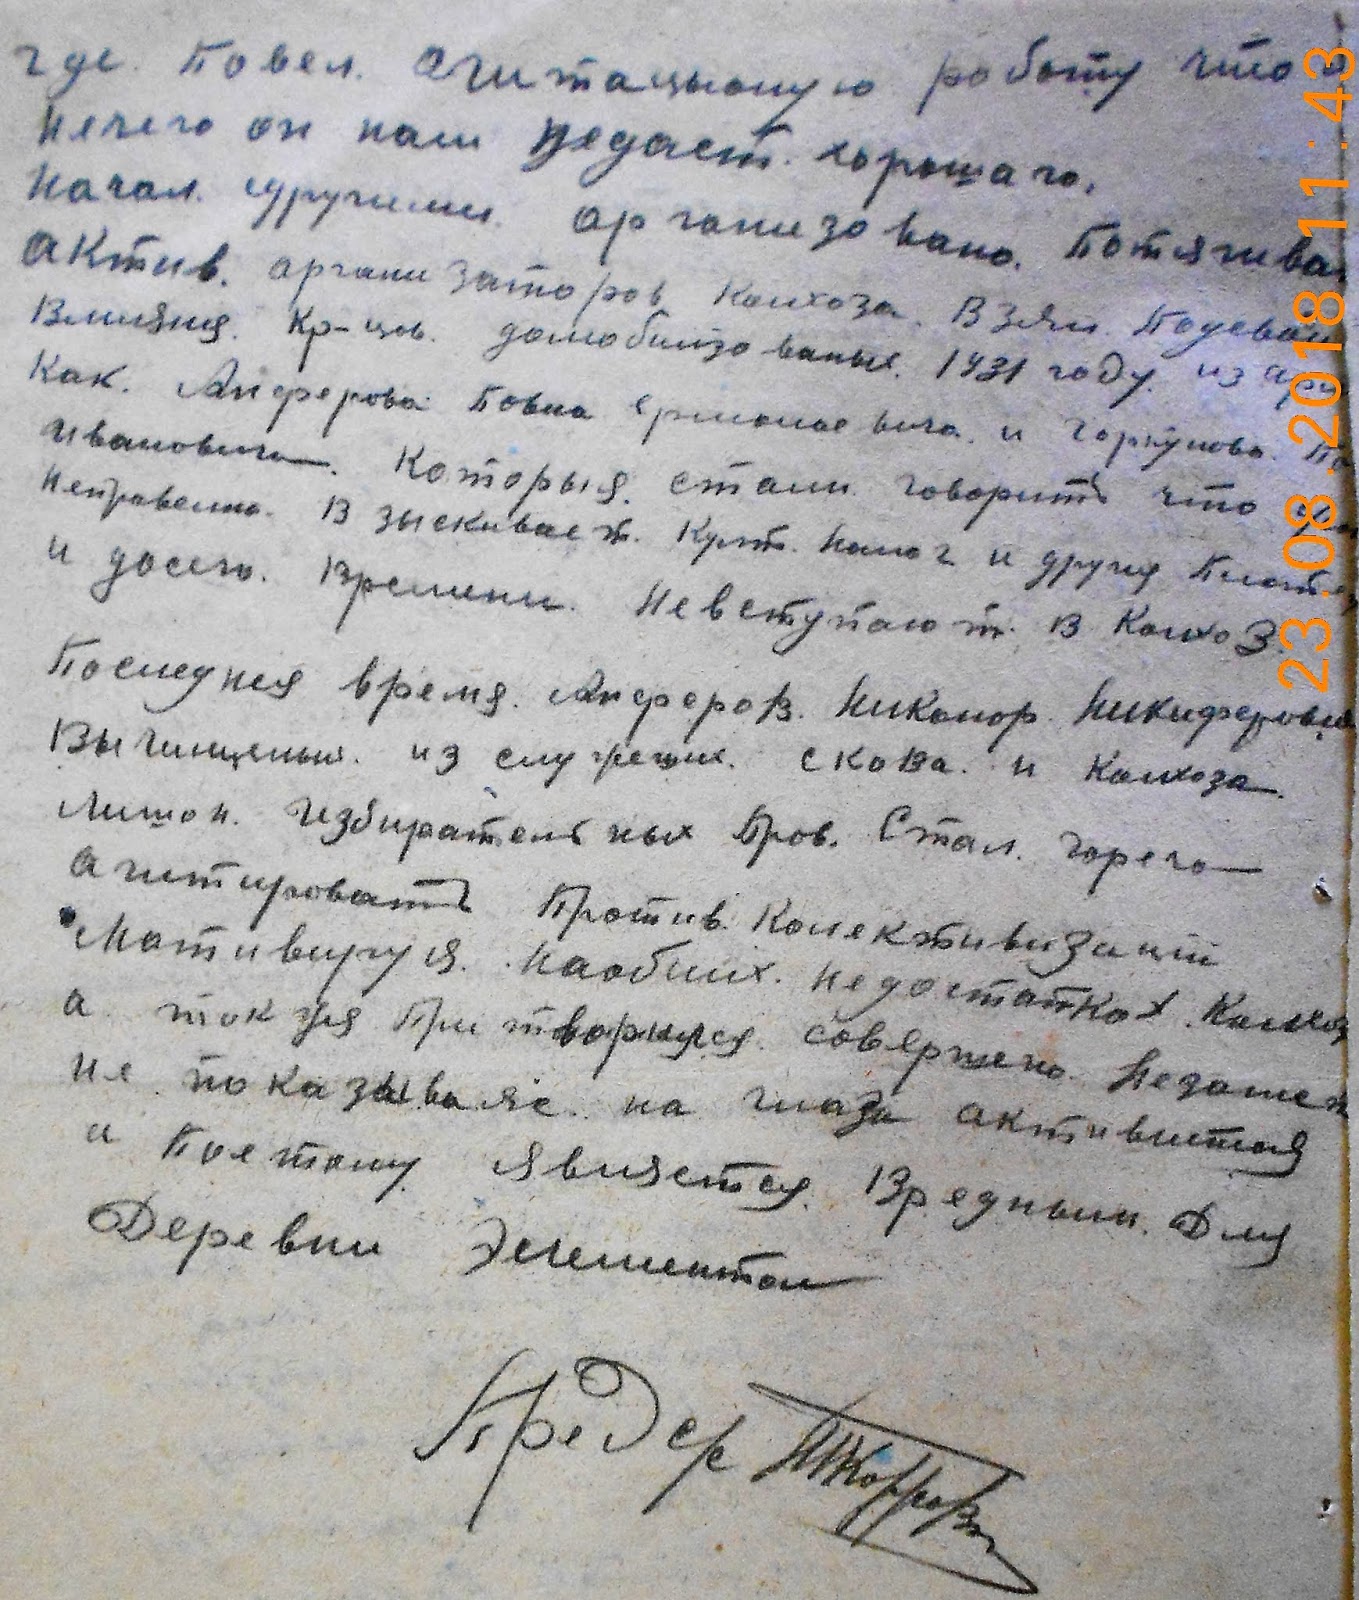 где. Повел. агитацыоную работу что
нечего он нам недаст. хорошаго,
Начал. сдругими. организовано. Потягива
актив. организаторов колхоза. Взяли. Под
влияния. Кр-цов. домобилизованых. 1931 году. из
Как. Анферова Повла Ермолаевича. и Горкунова.
Ивановича. Которыя. стали. говорить что
неправелно. Взыскивает. Культ. налог и другия
и досего. времени. Невступают. в колхоз.
Последнея время. Анферов. Никонор. Никиферов
Вычищеный. из служещих. скова. и колхоза.
лишон. избирательных прав. Стал. горечо
агитировать против. Колективизаций
Мотивируя. наобших. недостатках. Колхоз
а также притворился. совершено. Незамет
не показываяс. на глаза активистоя
и поетому является. вредным. Для
Деревни Элементом
Предср
23.08.2018 11:43